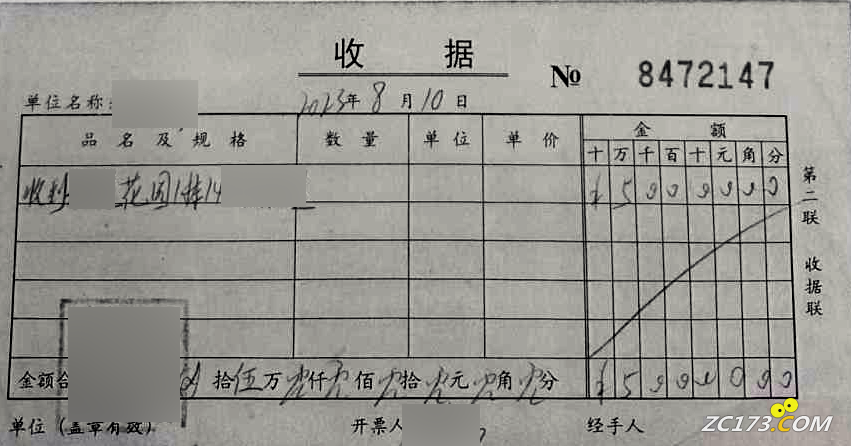 收 据
№ 8472147
单位名称:
2023年 8 月 10 日
品 名 及 规 格 数 量 单 位 单 价 金 额
十 万 千 百 十 元 角 分
收到 花园1栋14 ¥ 5 0 0 0 0 0 0
金额合 拾伍万零仟零佰零拾零元零角零分 ¥ 5 0 0 0 0 0 0
单位(盖章有效) 开票人 经手人
第二联 收据联
ZC173.COM